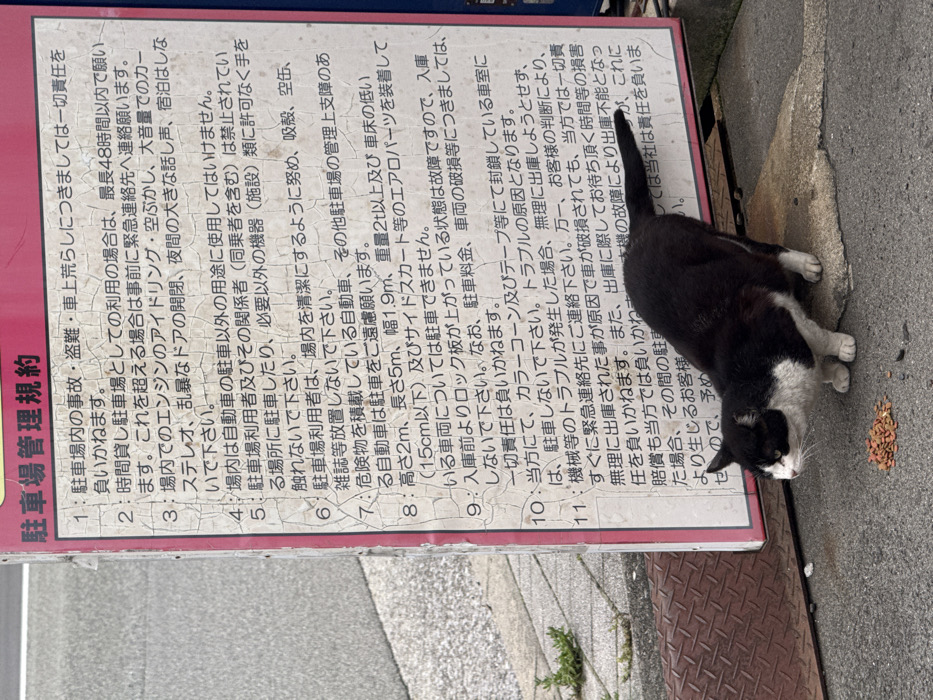 駐車場管理規約
1：駐車場内の事故・盗難・車上荒らしにつきましては一切責任を
負いかねます。
2：時間貸し駐車場としての利用の場合は、最長48時間以内で願い
ます。これを超える場合は事前に緊急連絡先へ連絡願います。
3：場内でのエンジンのアイドリング・空ぶかし、大音量でのカー
ステレオ、乱暴なドアの開閉、夜間の大きな話し声、宿泊はしな
いで下さい。
4：場内は自動車の駐車以外の用途に使用してはいけません。
5：駐車場利用者及びその関係者（同乗者を含む）は禁止されてい
る場所に駐車したり、必要以外の機器（施設）類に許可なく手を
触れないで下さい。
6：駐車場利用者は、場内を清潔にするように努め、吸殻、空缶、
雑誌等放置しないで下さい。
7：危険物を積載している自動車、その他駐車場の管理上支障のあ
る自動車は駐車をご遠慮願います。
8：高さ2m、長さ5m、幅1.9m、重量2t以上及び車床の低い
（15cm以下）及びサイドスカート等のエアロパーツを装着して
いる車両については駐車できません。
9：入庫前よりロック板が上がっている状態は故障ですので、入庫
しないで下さい。なお、駐車料金、車両の破損等につきましては、
一切責任は負いかねます。
10：当方にて、カラーコーン及びテープ等にて封鎖している車室に
は、駐車しないで下さい。トラブルの原因となります。
11：機械等のトラブルが発生した場合、無理に出庫しようとせず、
すぐに緊急連絡先にご連絡下さい。万一、お客様の判断により、
無理に出庫された事が原因で車が破損されても、当方では一切責
任を負いかねます。また、出庫に際してお待ち頂く時間等の損害
賠償も当方では負いかねま
機の故障により出庫不能となっ
た場合、その間の駐車
これに
より生じるお客様
ては当社は責任を負いま
せんので、予め
い。